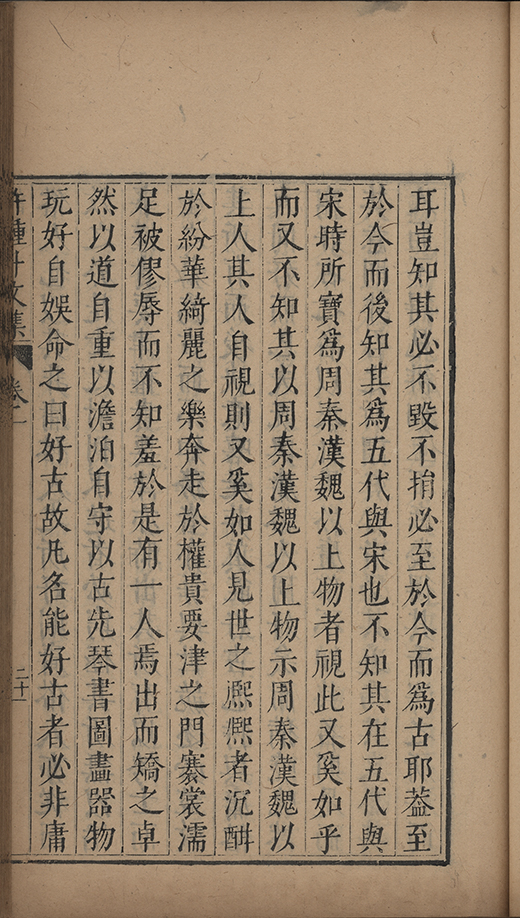 耳豈知其必不毀不捐必至於今而爲古耶葢至
於今而後知其爲五代與宋也不知其在五代與
宋時所寶爲周秦漢魏以上物者視此又奚如乎
而又不知其以周秦漢魏以上物示周秦漢魏以
上人其人自視則又奚如人見世之熈熈者沉酣
於紛華綺麗之樂奔走於權貴要津之門褰裳濡
足被僇辱而不知羞於是有一人焉出而矯之卓
然以道自重以澹泊自守以古先琴書圖畫器物
玩好自娛命之曰好古故凡名能好古者必非庸
許鍾斗文集 卷二 二十一